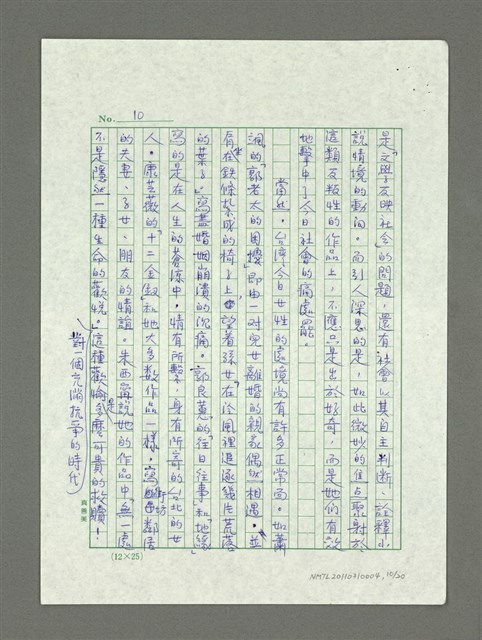 No. 10
是「文學反映社會」的問題，還有「社會以其自主判斷、詮釋小
說情境的動向。而引人深思的是，如此微妙的焦点聚射於
這類反叛性的作品上，不應只是出於好奇，而是她們有效
地擊中了今日社會的痛處罷。
當然，台灣今日女性的處境尚有許多正常面。如蕭
颯的「郭老太的困擾」即由一對兒女離婚的親家偶然相遇，並
肩坐在鉄條紮成的椅子上，望着孫女在冷風裡追逐幾片荒落
的葉子」寫盡婚姻崩潰的沉痛。郭良蕙的「往日往事」和她「緣」
寫的是在人生的蒼涼中，情有所繫，身有所寄的台北的女
人。康芸薇的「十二金釵」和她大多數作品一樣，寫街坊鄰居
的夫妻、子女、朋友的情誼。朱西甯說她的作品中「無一處
不是隱然一種生命的歡悅。」這種歡愉是多麼可貴的救贖！
（對一個充滿抗爭的時代）
(12×25)
NMTL20110310004, 10/20